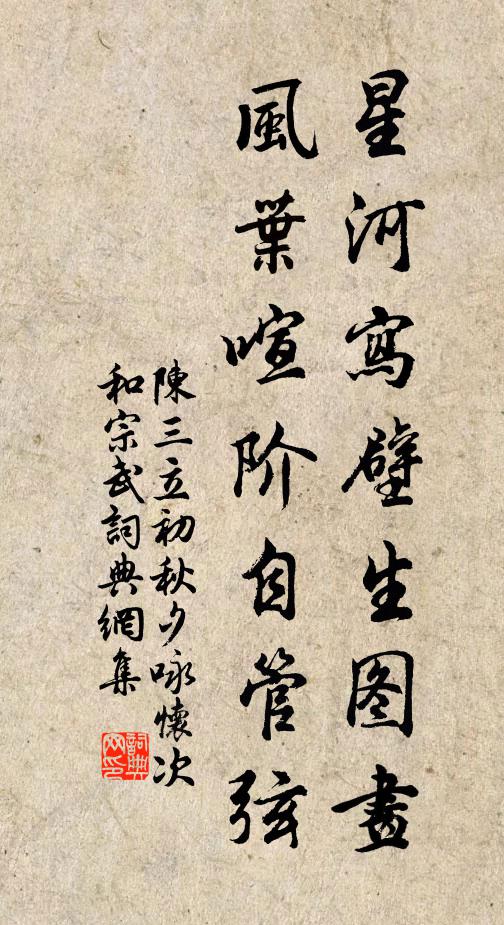 星河寫壁生图畫
風葉喧阶自管弦
陳三立初秋夕咏懷次
和宗武詞典網集
詞典
网印